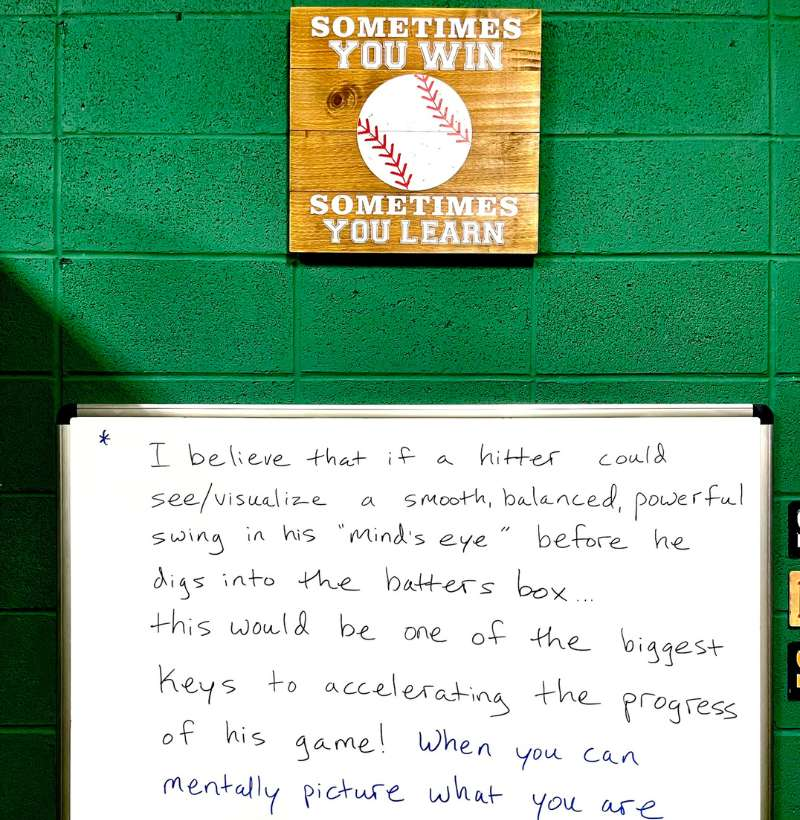 SOMETIMES
YOU WIN
SOMETIMES
YOU LEARN
* I believe that if a hitter could
see/visualize a smooth, balanced, powerful
swing in his "mind's eye" before he
digs into the batters box...
this would be one of the biggest
Keys to accelerating the progress
of his game! When you can
mentally picture what you are